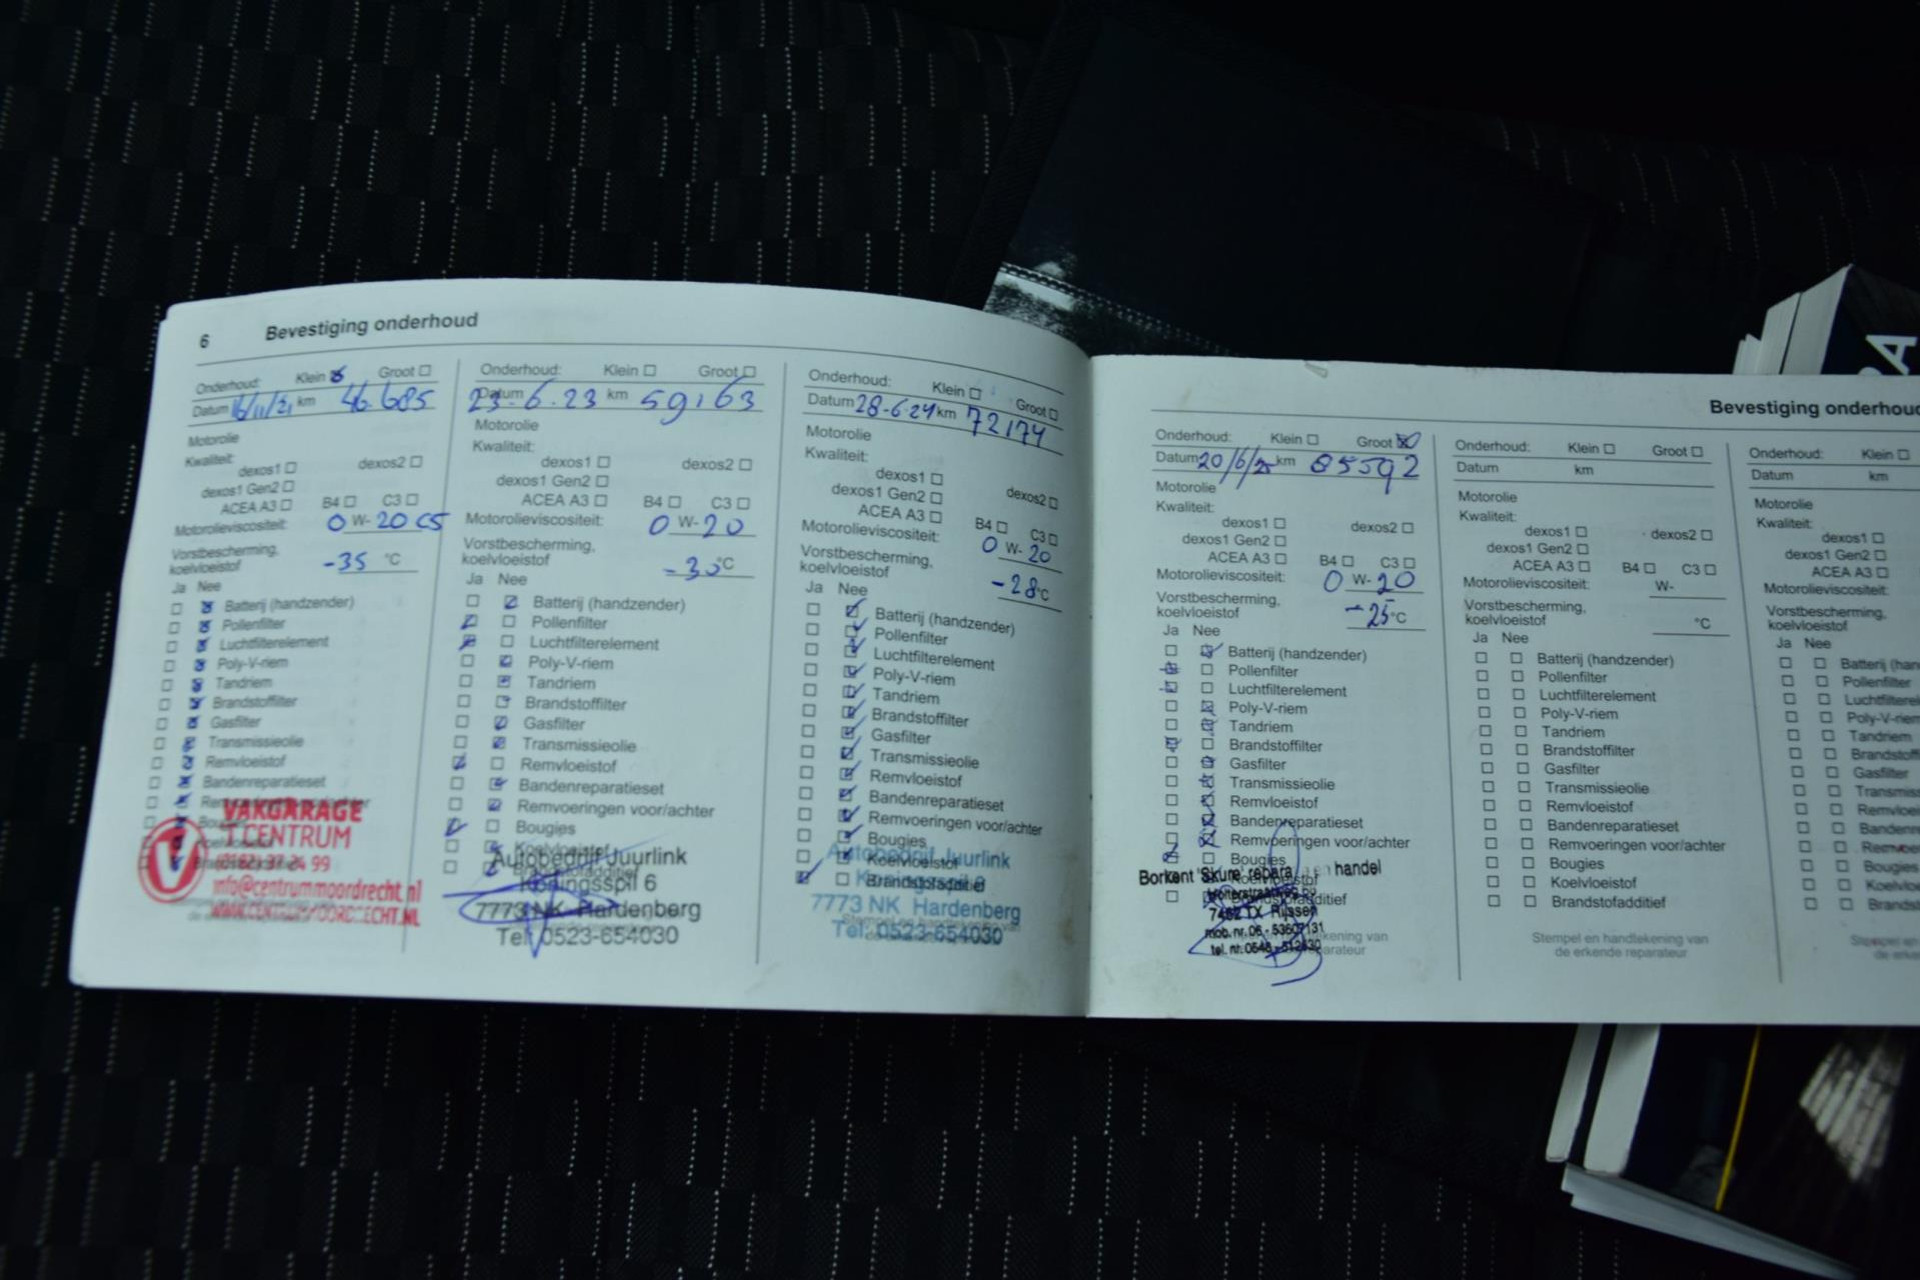 6 Bevestiging onderhoud
Onderhoud: Klein Groot
Datum 16/11/21 km 46.685
Motorolie
Kwaliteit:
dexos1 dexos2
dexos1 Gen2
ACEA A3 B4 C3
Motorolieviscositeit: 0 W- 20 C5
Vorstbescherming,
koelvloeistof -35 °C
Ja Nee
Batterij (handzender)
Pollenfilter
Luchtfilterelement
Poly-V-riem
Tandriem
Brandstoffilter
Gasfilter
Transmissieolie
Remvloeistof
Bandenreparatieset
VAKGARAGE
'T CENTRUM
(0162) 37 24 99
info@centrummoordrecht.nl
WWW.CENTRUMMOORDRECHT.NL
Onderhoud: Klein Groot
Datum 23-6-23 km 59163
Motorolie
Kwaliteit:
dexos1 dexos2
dexos1 Gen2
ACEA A3 B4 C3
Motorolieviscositeit: 0 W- 20
Vorstbescherming,
koelvloeistof -30 °C
Ja Nee
Batterij (handzender)
Pollenfilter
Luchtfilterelement
Poly-V-riem
Tandriem
Brandstoffilter
Gasfilter
Transmissieolie
Remvloeistof
Bandenreparatieset
Remvoeringen voor/achter
Bougies
Koelvloeistof
Brandstofadditief
Autobedrijf Juurlink
Koningsspil 6
7773 NK Hardenberg
Tel: 0523-654030
Onderhoud: Klein Groot
Datum 28-6-24 km 72174
Motorolie
Kwaliteit:
dexos1
dexos1 Gen2 dexos2
ACEA A3 B4 C3
Motorolieviscositeit: 0 W- 20
Vorstbescherming,
koelvloeistof -28 °C
Ja Nee
Batterij (handzender)
Pollenfilter
Luchtfilterelement
Poly-V-riem
Tandriem
Brandstoffilter
Gasfilter
Transmissieolie
Remvloeistof
Bandenreparatieset
Remvoeringen voor/achter
Bougies
Koelvloeistof
Brandstofadditief
Autobedrijf Juurlink
Koningsspil 6
7773 NK Hardenberg
Tel: 0523-654030
Bevestiging onderhoud
Onderhoud: Klein Groot
Datum 20/6/25 km 85592
Motorolie
Kwaliteit:
dexos1 dexos2
dexos1 Gen2
ACEA A3 B4 C3
Motorolieviscositeit: 0 W- 20
Vorstbescherming,
koelvloeistof -25 °C
Ja Nee
Batterij (handzender)
Pollenfilter
Luchtfilterelement
Poly-V-riem
Tandriem
Brandstoffilter
Gasfilter
Transmissieolie
Remvloeistof
Bandenreparatieset
Remvoeringen voor/achter
Bougies
Koelvloeistof
Brandstofadditief
Borkent 'Skure' repara en handel
7462 TX Rijssen
Onderhoud: Klein Groot
Datum km
Motorolie
Kwaliteit:
dexos1 dexos2
dexos1 Gen2
ACEA A3 B4 C3
Motorolieviscositeit: W-
Vorstbescherming,
koelvloeistof °C
Ja Nee
Batterij (handzender)
Pollenfilter
Luchtfilterelement
Poly-V-riem
Tandriem
Brandstoffilter
Gasfilter
Transmissieolie
Remvloeistof
Bandenreparatieset
Remvoeringen voor/achter
Bougies
Koelvloeistof
Brandstofadditief
Stempel en handtekening van
de erkende reparateur
Onderhoud: Klein
Datum km
Motorolie
Kwaliteit:
dexos1
dexos1 Gen2
ACEA A3
Motorolieviscositeit:
Vorstbescherming,
koelvloeistof
Ja Nee
Batterij (han
Pollenfilter
Luchtfilterele
Poly-V-riem
Tandriem
Brandstoffi
Gasfilter
Transmiss
Remvloei
Bandenr
Remvoe
Bougies
Koelvlo
Brands